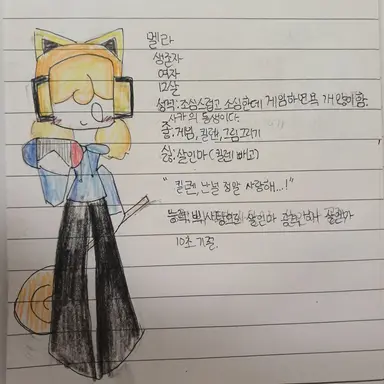 멜라
생존자
여자
12살
성격: 조심스럽고 소심한데 게임하면 욕 개많이함.
사카의 동생이다.
좋: 게임, 킬렌, 그림그리기
싫: 살인마 (킬렌 빼고)
"킬렌, 난널 정말 사랑해...!"
능력: 빅 사탕으로 살인마 공격
10초 기절.